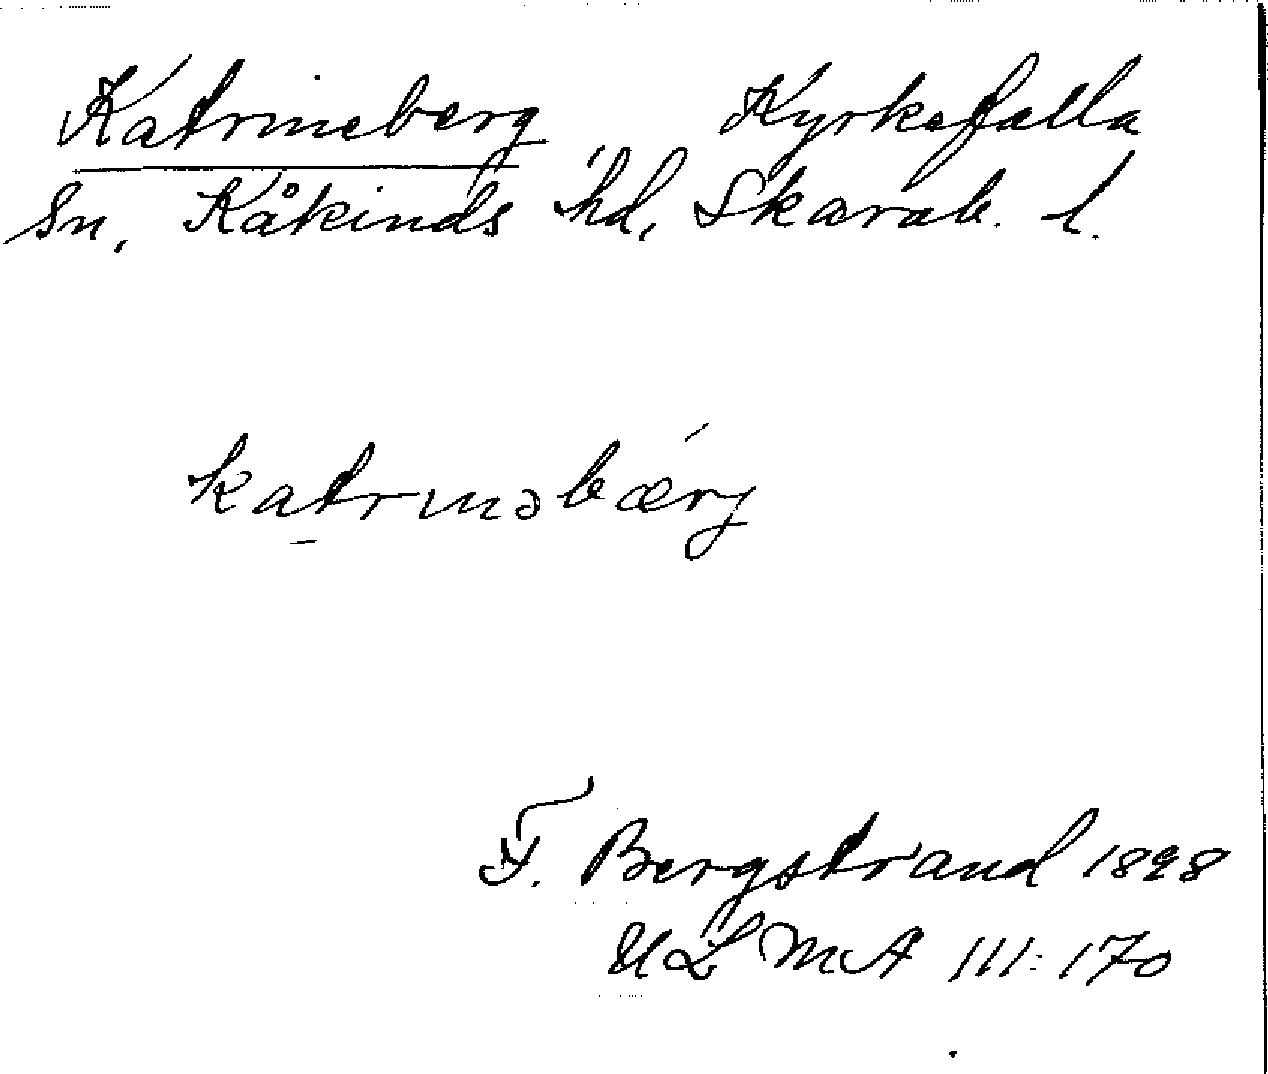 Katrineberg Kyrkefalla
Sn, Kåkinds hd, Skarab. l.
katrinəbærj
F. Bergstrand 1898
ULMA 111:170